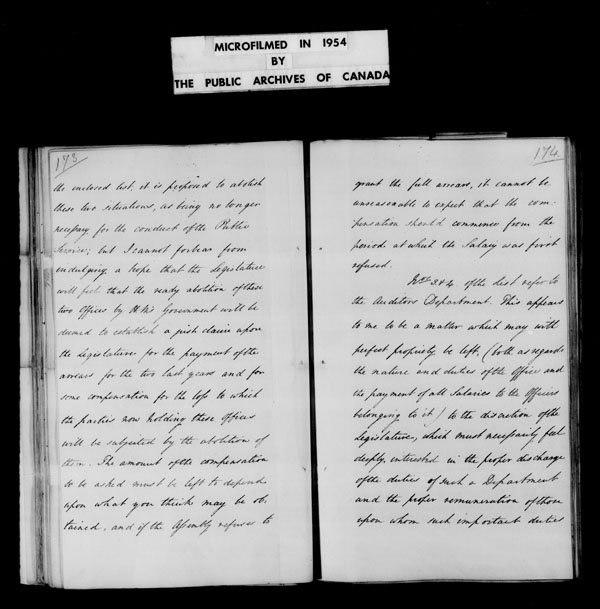 MICROFILMED IN 1954
BY
THE PUBLIC ARCHIVES OF CANADA
173
the enclosed list, it is proposed to abolish
these two situations, as being no longer
necessary for the conduct of the Public
Service; but I cannot forbear from
indulging a hope that the Legislature
will feel that the ready abolition of these
two Offices by H. M's Government will be
deemed to establish a just claim upon
the Legislature for the payment of the
arrears for the two last years and for
some compensation for the loss to which
the parties now holding these Offices
will be subjected by the abolition of
them. The amount of the compensation
to be asked must be left to depend
upon what you think may be ob-
tained, and if the Assembly refuses to
174
grant the full arrears, it cannot be
unreasonable to expect that the com-
pensation should commence from the
period at which the Salary was first
refused.
Nos. 3 & 4 of the list refer to
the Auditors Department. This appears
to me to be a matter which may with
perfect propriety be left, (both as regards
the nature and duties of the Office and
the payment of all Salaries to the Officers
belonging to it) to the discretion of the
Legislature, which must necessarily feel
deeply interested in the proper discharge
of the duties of such a Department
and the proper remuneration of those
upon whom such important duties